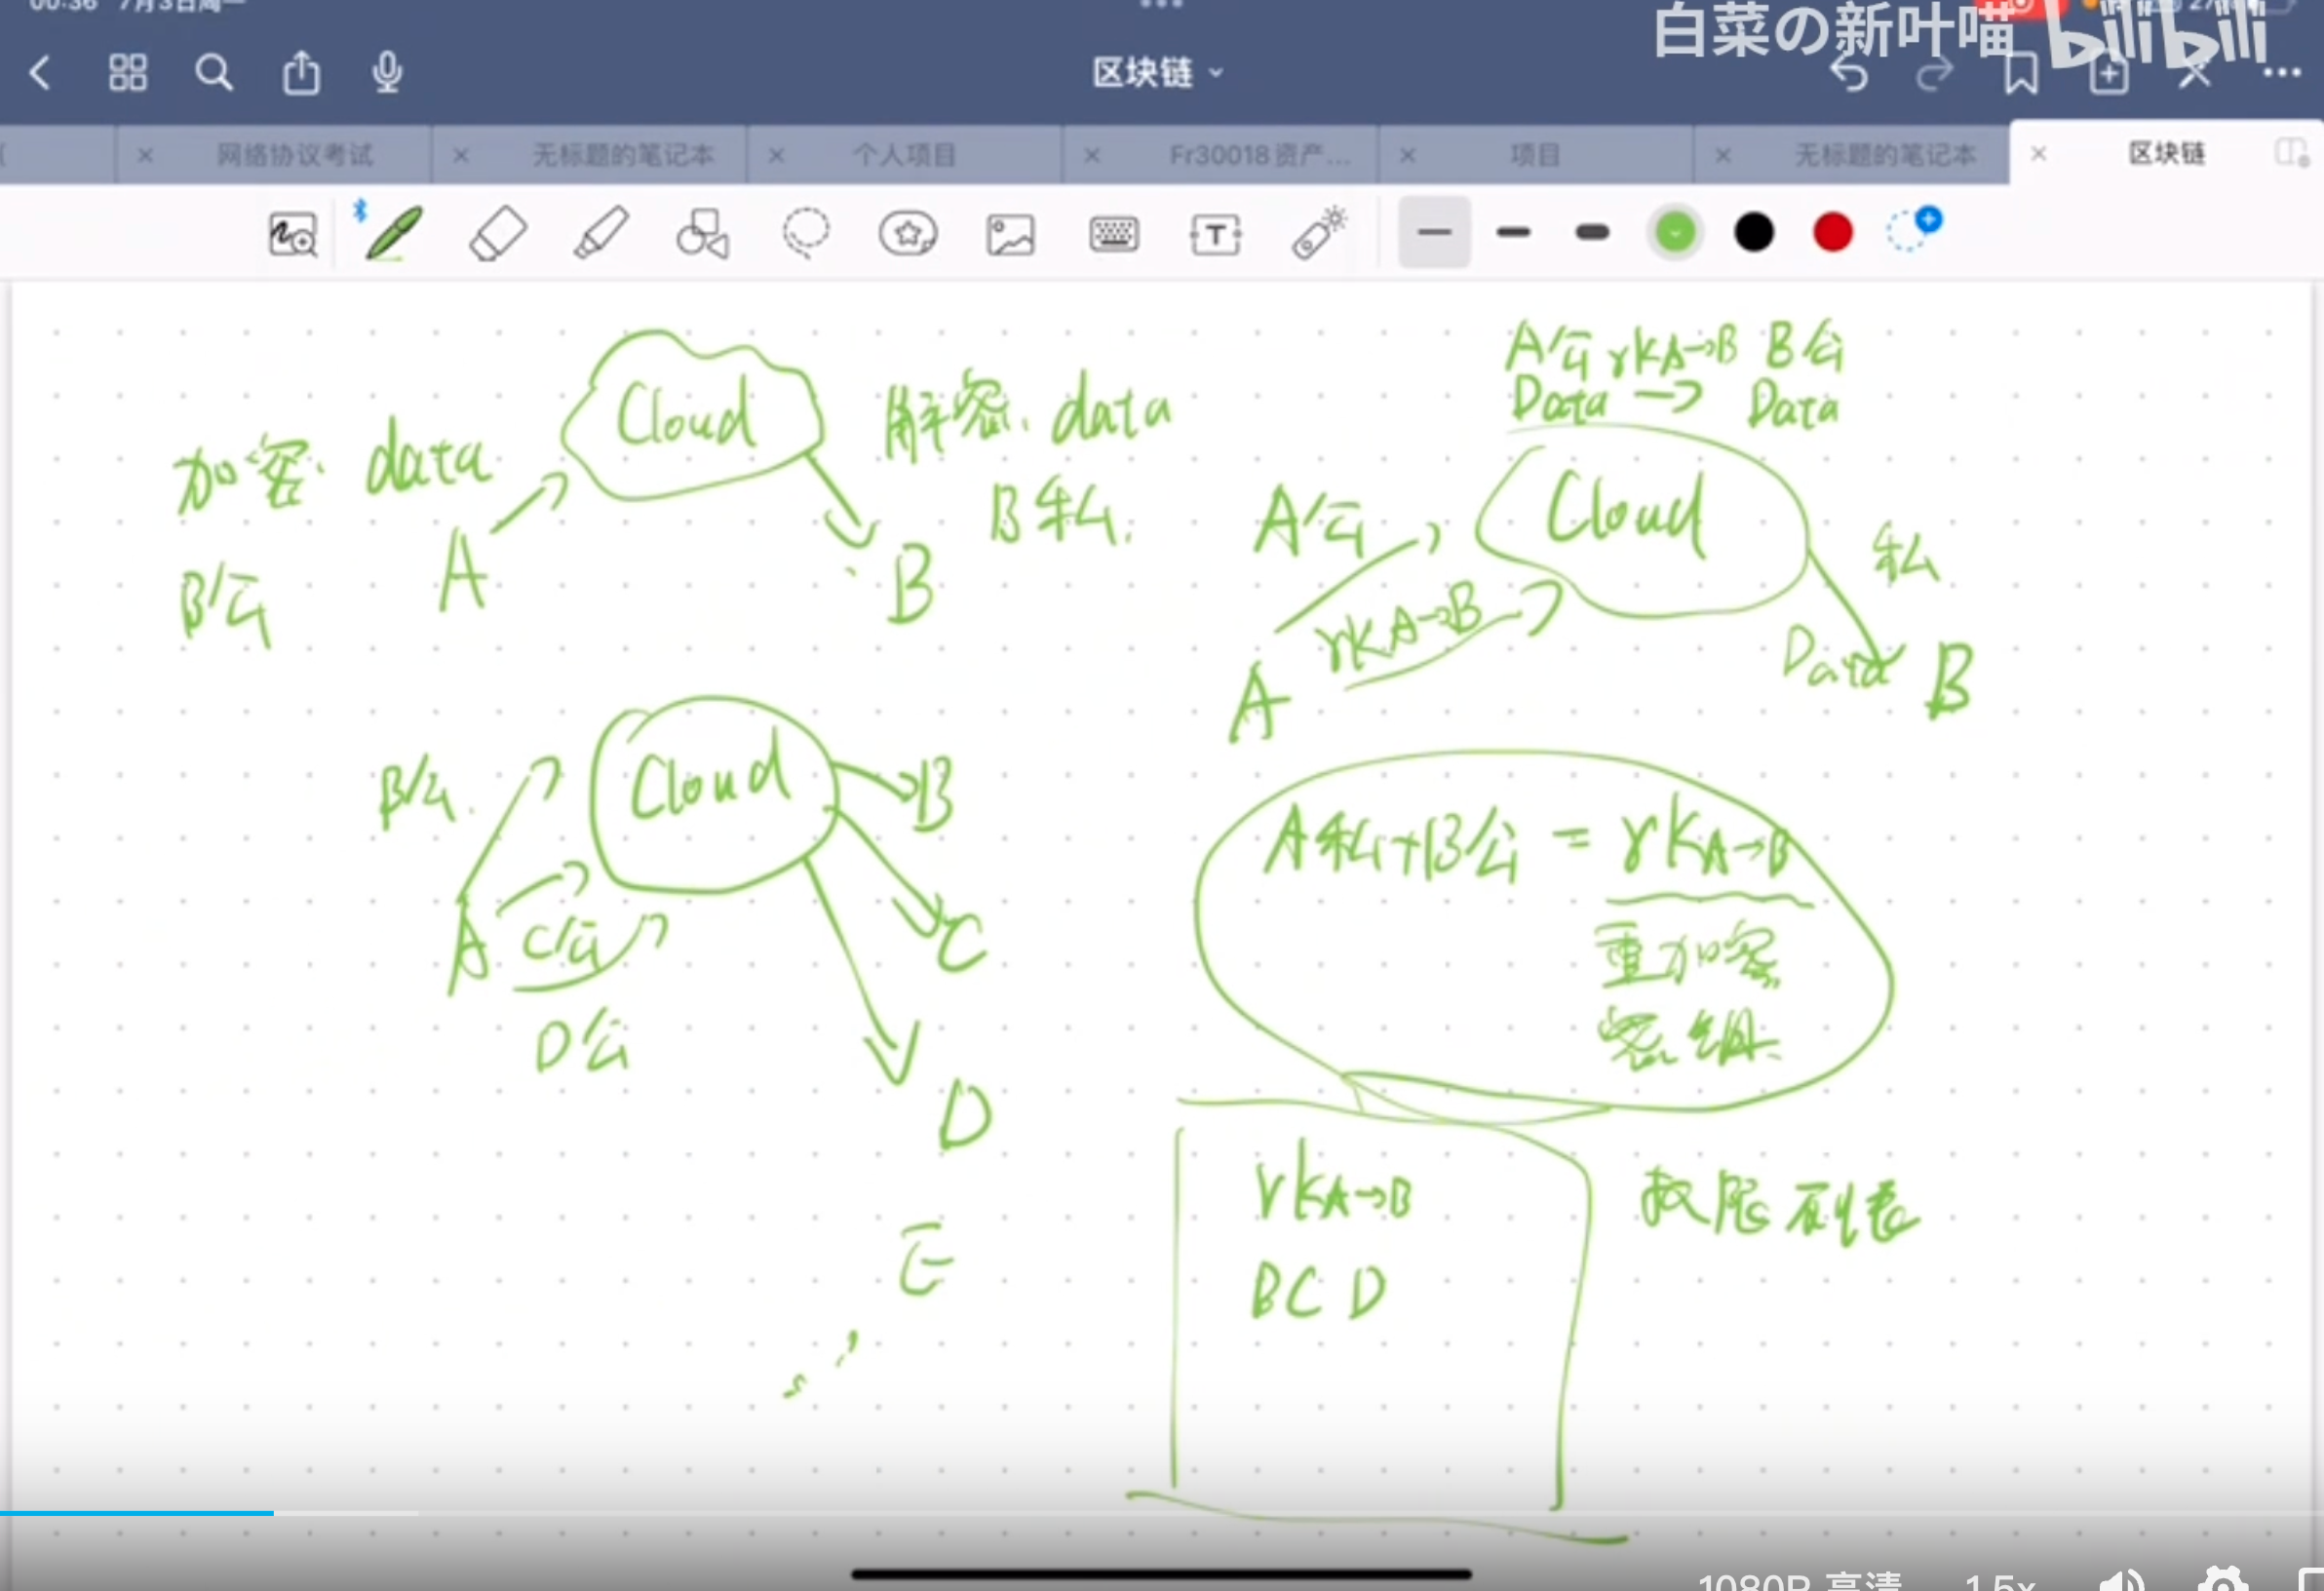 00:36 7月3日周一
白菜の新叶喵 bilibili
区块链
网络协议考试
无标题的笔记本
个人项目
Fr30018资产...
项目
无标题的笔记本
区块链
加密 data
B公
A
Cloud
解密 data
B私
B
A公 rkA→B B公
Data → Data
A公
Cloud
私
rkA→B
A
Data
B
B公
Cloud
B
A
C公
C
D公
D
E
A私+B公 = rkA→B
重加密
密钥
rkA→B
BCD
权限列表
1080P 高清 1.5x